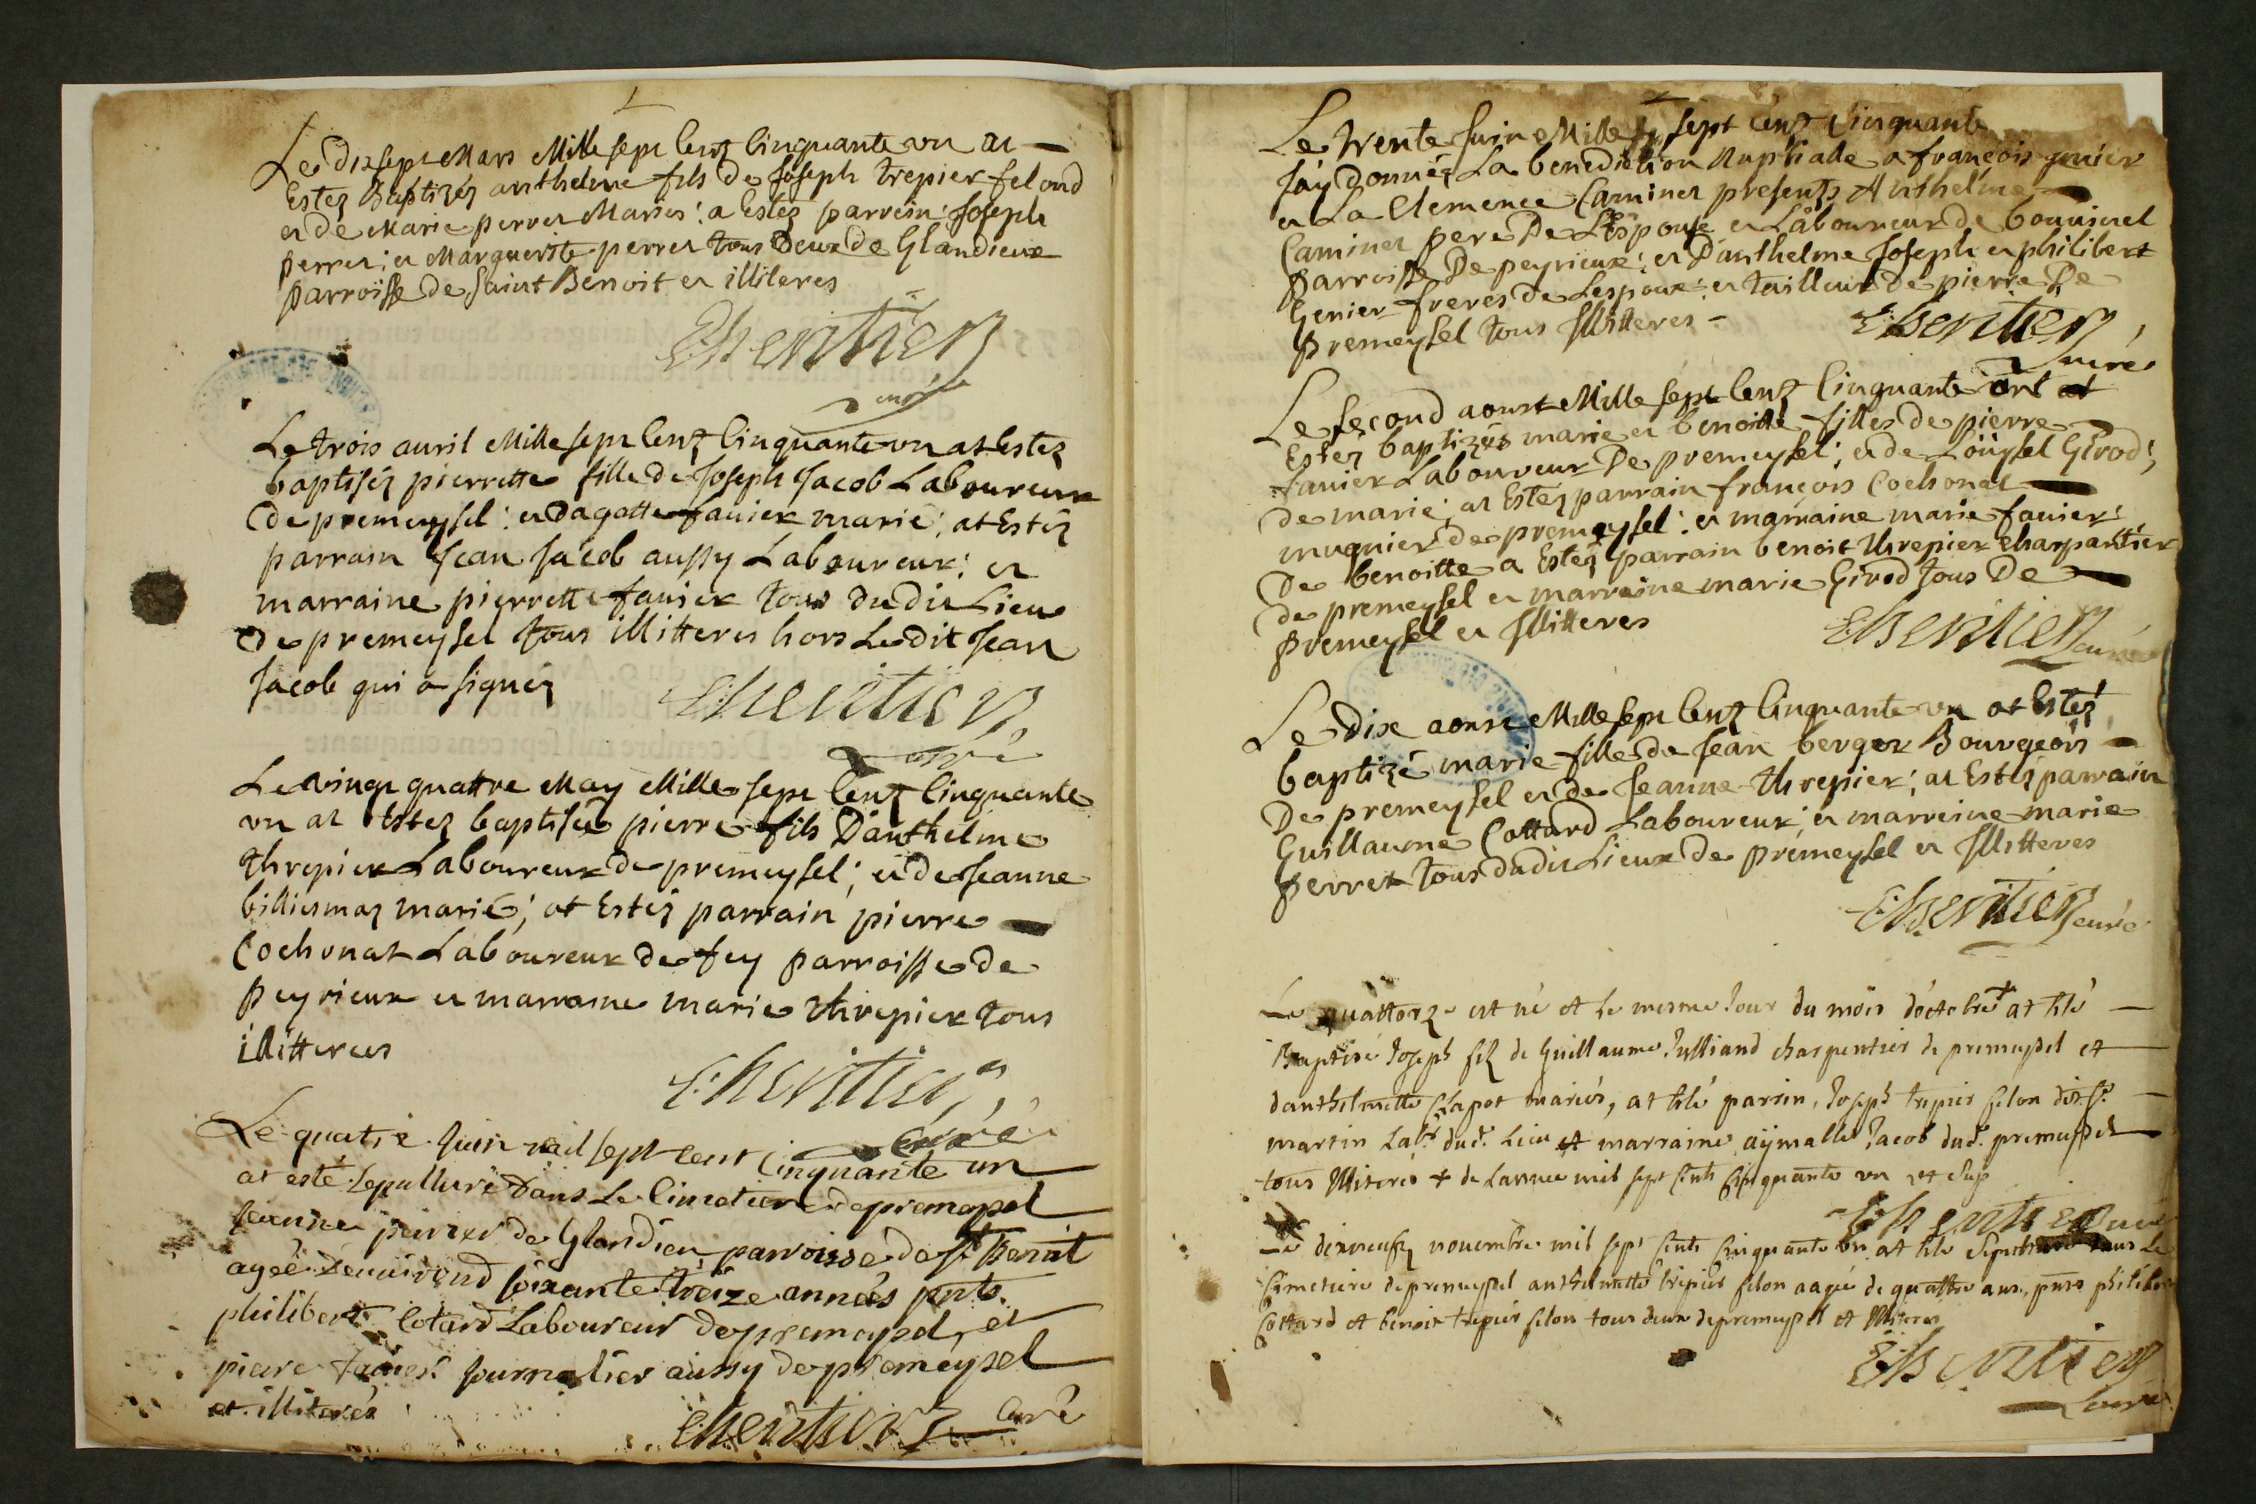 Le dixsept Mars Mille sept Centz Cinquante un at
Estez Baptizéz anthelme fils de Joseph trepier felond
et de Marie perret Mariés: a Estez parrein: Joseph
perret: et Marguerite perret tous Deux de Glandieux
parroisse de saint Benoit et illiteres
Lheritier
curé
Le trois auril Mille sept Centz Cinquante un at Estez
baptiséz pierrette fille de Joseph Jacob Laboureur
de premeysel: et dagatte fauier marié: at Estéz
parrain Jean Jacob aussy Laboureur: et
marraine pierrette fauier tous du dit Lieu
de premeysel tous illitteres hors Ledit Jean
Jacob qui a signéz
Lheritier
curé
Le vingt quattre May Mille sept Centz Cinquante
un at Estez baptiséz pierre fils D'anthelme
threpier Laboureur de premeysel; et de Jeanne
billiemaz marié; at Estéz parrain pierre
Cochonat Laboureur de fey parroisse de
peyrieux et marraine marie threpier tous
illitterees
Lheritier
Curé
Le quatre Juin mil sept cent Cinquante un
at esté sepulturé dans Le Cimetiere de premeysel
Jeanne perret de Glandieu parroisse de St Benoit
agée denuirond soixante treize années pnts
philibert Cotard Laboureur de premeysel, et
piere fauier Journalier aussy de premeysel
et illiterés
Lheritier curé
Le trente Juin Mille sept Centz Cinquante
J'ay donnéz La benediction Nuptialle a françois genier
et La Clemence Caminet presents Anthelme
Caminet pere De L'Espouse et Laboureur de bouuinel
parroisse De peyrieux: et D'anthelme Joseph et philibert
Genier freres de Lespoux: et tailleur de pierre De
premeysel tous Illitteres
Lheritier
curé
Le second aoust Mille sept Centz Cinquante un at
Estéz baptizées marie et benoitte filles de pierre
fauier Laboureur De premeysel; et de Loüysel Girod;
de marie; at Estez parrain françois Cochonat
mugnier de premeysel: et marraine marie fauier:
De benoitte a Estéz parrain benoit threpier charpantier
de premeysel et marraine marie Girod tous De
premeysel et Illitteres
Lheritier curé
Le Dix aoust Mille sept Centz Cinquante un at Estéz
baptizé marie fille de Jean berger Bourgeois
De premeysel et de Jeanne threpier; at Estéz parrain
Guillaume Cottard Laboureur et marreine marie
perret tous dudit Lieux de premeysel et Illitteres
Lheritier curé
Le quattorze est né et le mesme Jour du mois d'octobre + at esté
Baptisé Joseph filz de Guillaume Julliand charpentier de premeysel et
danthelmette Chapot mariés, at esté parrin, Joseph trepier felon
martin Labr. dud. Lieu et marraine aÿmable Jacob dud. premeysel
tous Illiteres + de Lannee mil sept Cents Cinquante un
Lheritier curé
Le dixneufz nouembre mil sept Cents Cinquante un at esté Sepulturé dans Le
Cimetiere de premeysel anthelmette trepier felon aagée de quattre ans, pnts philibert
Cottard et benoit trepier felon tous deux de premeysel et Illiteres
Lheritier
Curé